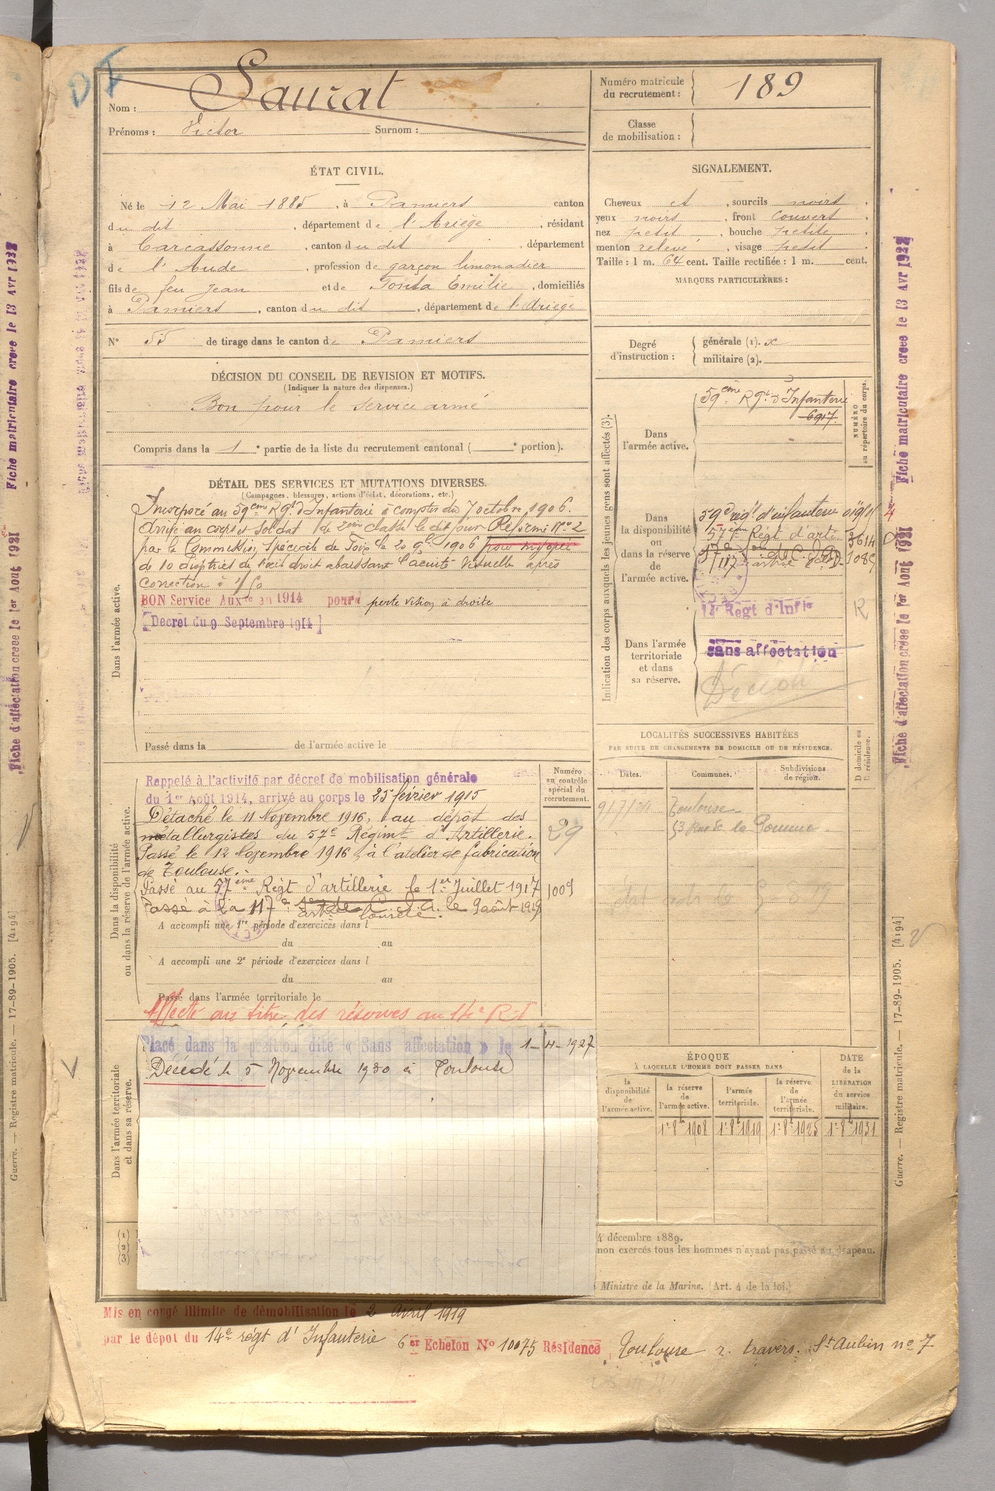 Nom : Saurat
Prénoms : Victor Surnom :
Numéro matricule du recrutement : 189
Classe de mobilisation :
ÉTAT CIVIL.
Né le 12 Mai 1885, à Pamiers canton
du dit, département de l'Ariège, résidant
à Carcassonne, canton du dit, département
de l'Aude, profession de garçon limonadier
fils de feu Jean et de Emilie, domiciliés
à Pamiers, canton du dit, département de l'Ariège
N° 55 de tirage dans le canton de Pamiers
SIGNALEMENT.
Cheveux et, sourcils noirs
yeux noirs, front couvert
nez petit, bouche petite
menton relevé, visage petit
Taille : 1 m. 64 cent. Taille rectifiée : 1 m. cent.
MARQUES PARTICULIÈRES :
Degré d'instruction : générale (1). x
militaire (2).
DÉCISION DU CONSEIL DE REVISION ET MOTIFS.
(Indiquer la nature des dispenses.)
Bon pour le service armé
Compris dans la 1e partie de la liste du recrutement cantonal ( e portion).
DÉTAIL DES SERVICES ET MUTATIONS DIVERSES.
(Campagnes, blessures, actions d'éclat, décorations, etc.)
Dans l'armée active.
Incorporé au 59ème Rgt d'Infanterie à compter du 7 octobre 1906.
arrivé au corps et soldat de 2ème classe le dit jour. Réformé n° 2
par la Commission Spéciale de Foix le 20 1906 pour myopie
de 10 dioptries de l'œil droit abaissant l'acuité visuelle après
correction à 1/50
BON Service Auxre en 1914 pour perte vision à droite
[Decret du 9 Septembre 1914]
Passé dans la de l'armée active le
Indication des corps auxquels les jeunes gens sont affectés (3).
NUMÉRO au répertoire du corps.
Dans l'armée active.
59ème Rgt d'Infanterie
6917
Dans la disponibilité ou dans la réserve de l'armée active.
59e régt d'infanterie
57ème Régt d'art
14e Régt d'Infie
Dans l'armée territoriale et dans sa réserve.
sans affectation
Décédé
LOCALITÉS SUCCESSIVES HABITÉES
PAR SUITE DE CHANGEMENTS DE DOMICILE OU DE RÉSIDENCE.
Dates. Communes. Subdivisions de région. D domicile ou R résidence.
9/7/24 Toulouse
53 Rue de la Pomme
Dans la disponibilité ou dans la réserve de l'armée active.
Numéro au contrôle spécial du recrutement.
Rappelé à l'activité par décret de mobilisation générale
du 1er Août 1914, arrivé au corps le 25 février 1915
Détaché le 11 Novembre 1916, au dépôt des
métallurgistes du 57e Régiment d'Artillerie.
29
Passé le 12 Novembre 1916, à l'atelier de fabrication
de Toulouse.
Passé au 57ème Régt d'artillerie le 1er Juillet 1917
1009
Passé à la 117e artie lourde. le 9 août 1919
A accompli une 1re période d'exercices dans l
du au
A accompli une 2e période d'exercices dans l
du au
Passé dans l'armée territoriale le
Affecté au titre des réserves au 14e R.I
Dans l'armée territoriale et dans sa réserve.
Placé dans la position dite « Sans affectation » le 1-4-1927
Décédé le 5 Novembre 1930 à Toulouse
ÉPOQUE
À LAQUELLE L'HOMME DOIT PASSER DANS
DATE de la LIBÉRATION du service militaire.
la disponibilité de l'armée active. la réserve de l'armée active. l'armée territoriale. la réserve de l'armée territoriale.
1er 8bre 1908 1er 8bre 1919 1er 8bre 1925 1er 8bre 1931
(1)
(2)
(3)
4 décembre 1889.
non exercés tous les hommes n'ayant pas passé au drapeau.
Ministre de la Marine. (Art. 4 de la loi.)
Mis en congé illimité de démobilisation le 2 Avril 1919
par le dépot du 14e régt d'Infanterie 6e Echelon N° 10075 Résidence Toulouse r. travers. St Aubin n° 7
Fiche matriculaire creee le 13 Avr 1922
Fiche d'affectation creee le 1er Aout 1921
Guerre. — Registre matricule. — 17-89-1905. [4194]
Fiche matriculaire creee le 13 Avr 1922
Fiche d'affectation creee le 1er Aout 1921
Guerre. — Registre matricule. — 17-89-1905. [4194]